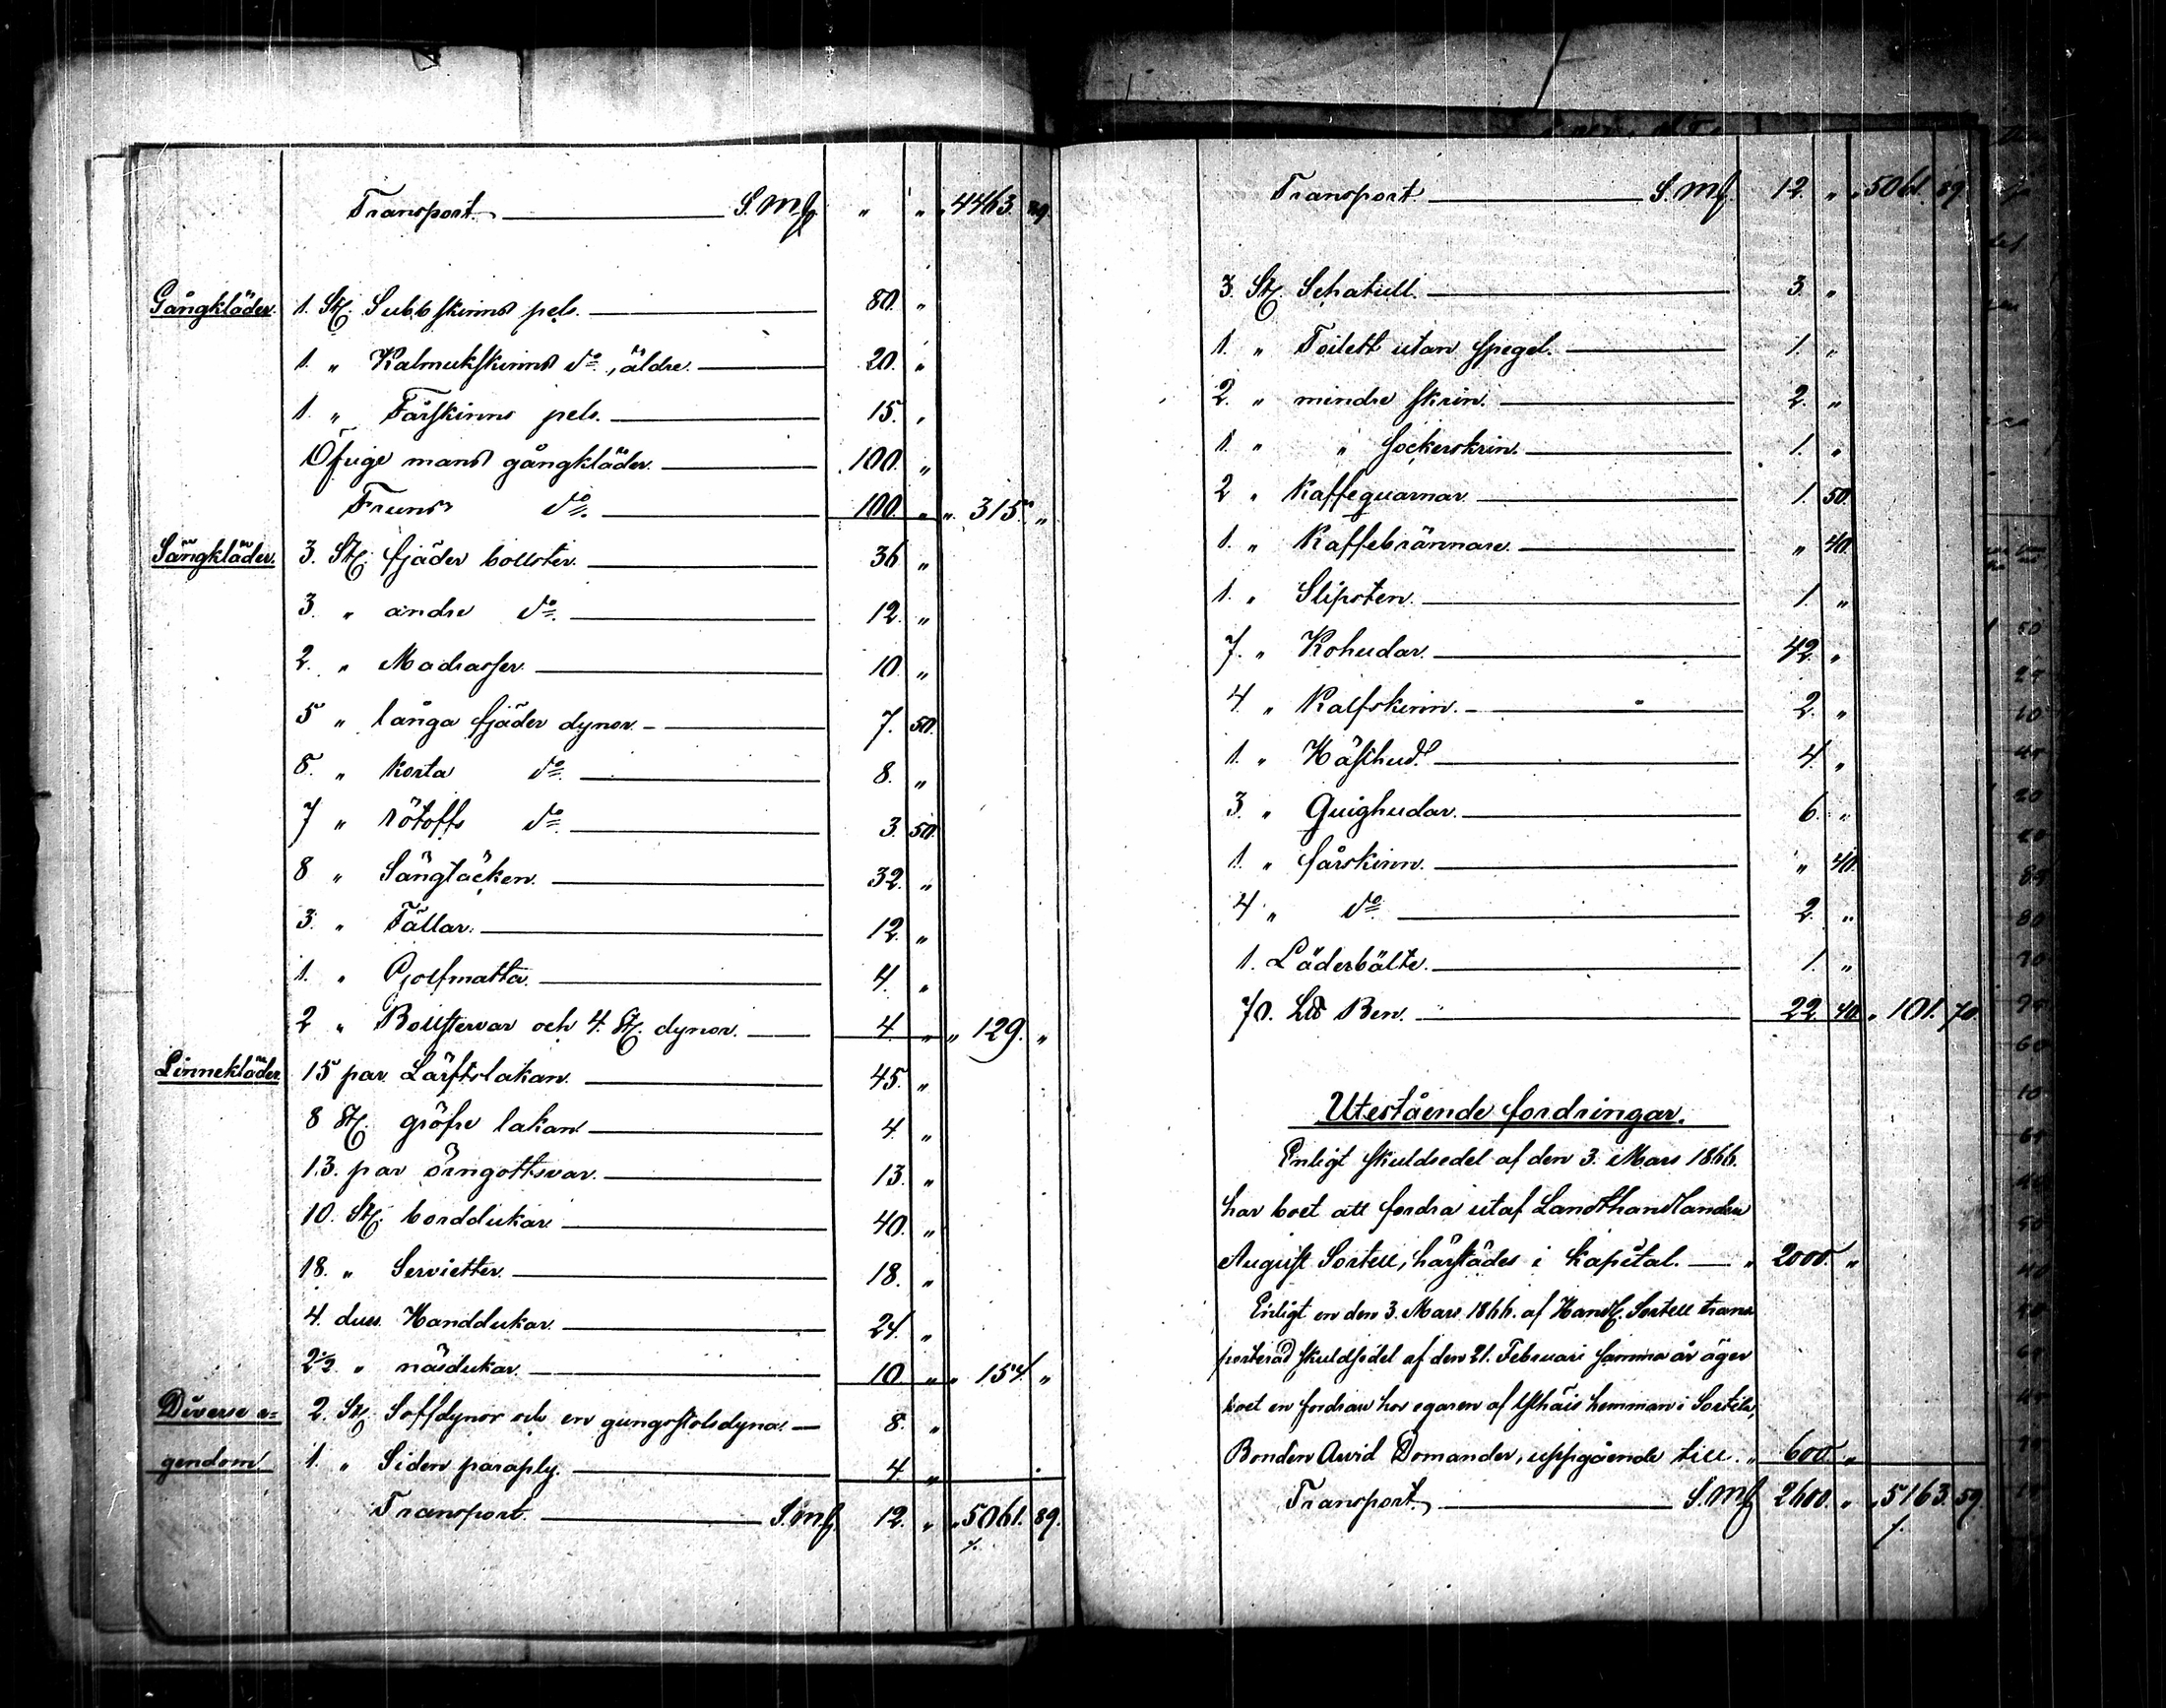 Transport. S.mf „ „ „ 4463. 89.
Gångkläder. 1. St. Subbskinns pels. 80. „
1. „ Kalmukskinns do, äldre. 20. „
1. „ Fårskinns pels. 15. „
Öfuige mans gångkläder. 100. „
Fruns do. 100. „ „ 315. „
Sängkläder. 3. St. fjäder bollster. 36 „
3. „ andre do. 12. „
2. „ Madrasser. 10. „
5 „ långa fjäder dynor. 7. 50.
8. „ korta do. 8. „
7 „ rötoffs do. 3. 50.
8 „ Sängtäcken. 32. „
3. „ Fällar. 12. „
1. „ Golfmatta. 4. „
2 „ Bollstervar och 4. St. dynor. 4. „ „ 129. „
Linnekläder. 15 par Lärftslakan. 45. „
8 St. gröfre lakan 4. „
13. par örngottsvar. 13. „
10. St. borddukar 40. „
18. „ Servietter. 18. „
4. duss. Handdukar. 24. „
2½ „ näsdukar. 10. „ „ 154. „
Diverse e= 2. St. Soffdynor och en gungstolsdyna. 8. „
gendom. 1. „ Siden paraply. 4. „
Transport. S.mf 12. „ „ 5061. 89.
Transport. S.mf 12. „ „ 5061. 89
3. St. Schatull. 3. „
1. „ Toilett utan spegel. 1. „
2. „ mindre skrin. 2. „
1. „ „ sockerskrin. 1. „
2 „ Kaffequarnar. 1. 50.
1. „ Kaffebrännare. „ 40.
1. „ Slipsten. 1. „
7. „ Kohudar. 42. „
4 „ Kalfskinn. 2. „
1. „ Hästhud. 4. „
3. „ Quighudar. 6. „
1. „ fårskinn. „ 40.
4 „ do. 2. „
1. Läderbälte. 1. „
70. Ben. 22. 40. „ 101. 70.
Utestående fordringar.
Enligt skuldsedel af den 3. Mars 1866.
har boet att fordra utaf Landthandlanden
August Sortell, härstädes i Kapital. „ 2000. „
Enligt en den 3. Mars 1866. af Handl. Sortell trans
porterad skuldsedel af den 21. Februari samma år äger
boet en fordran hos egaren af hemman i
Bonden Arvid Domander, uppgående till. „ 600. „
Transport. S.mf 2600. „ „ 5163. 59.